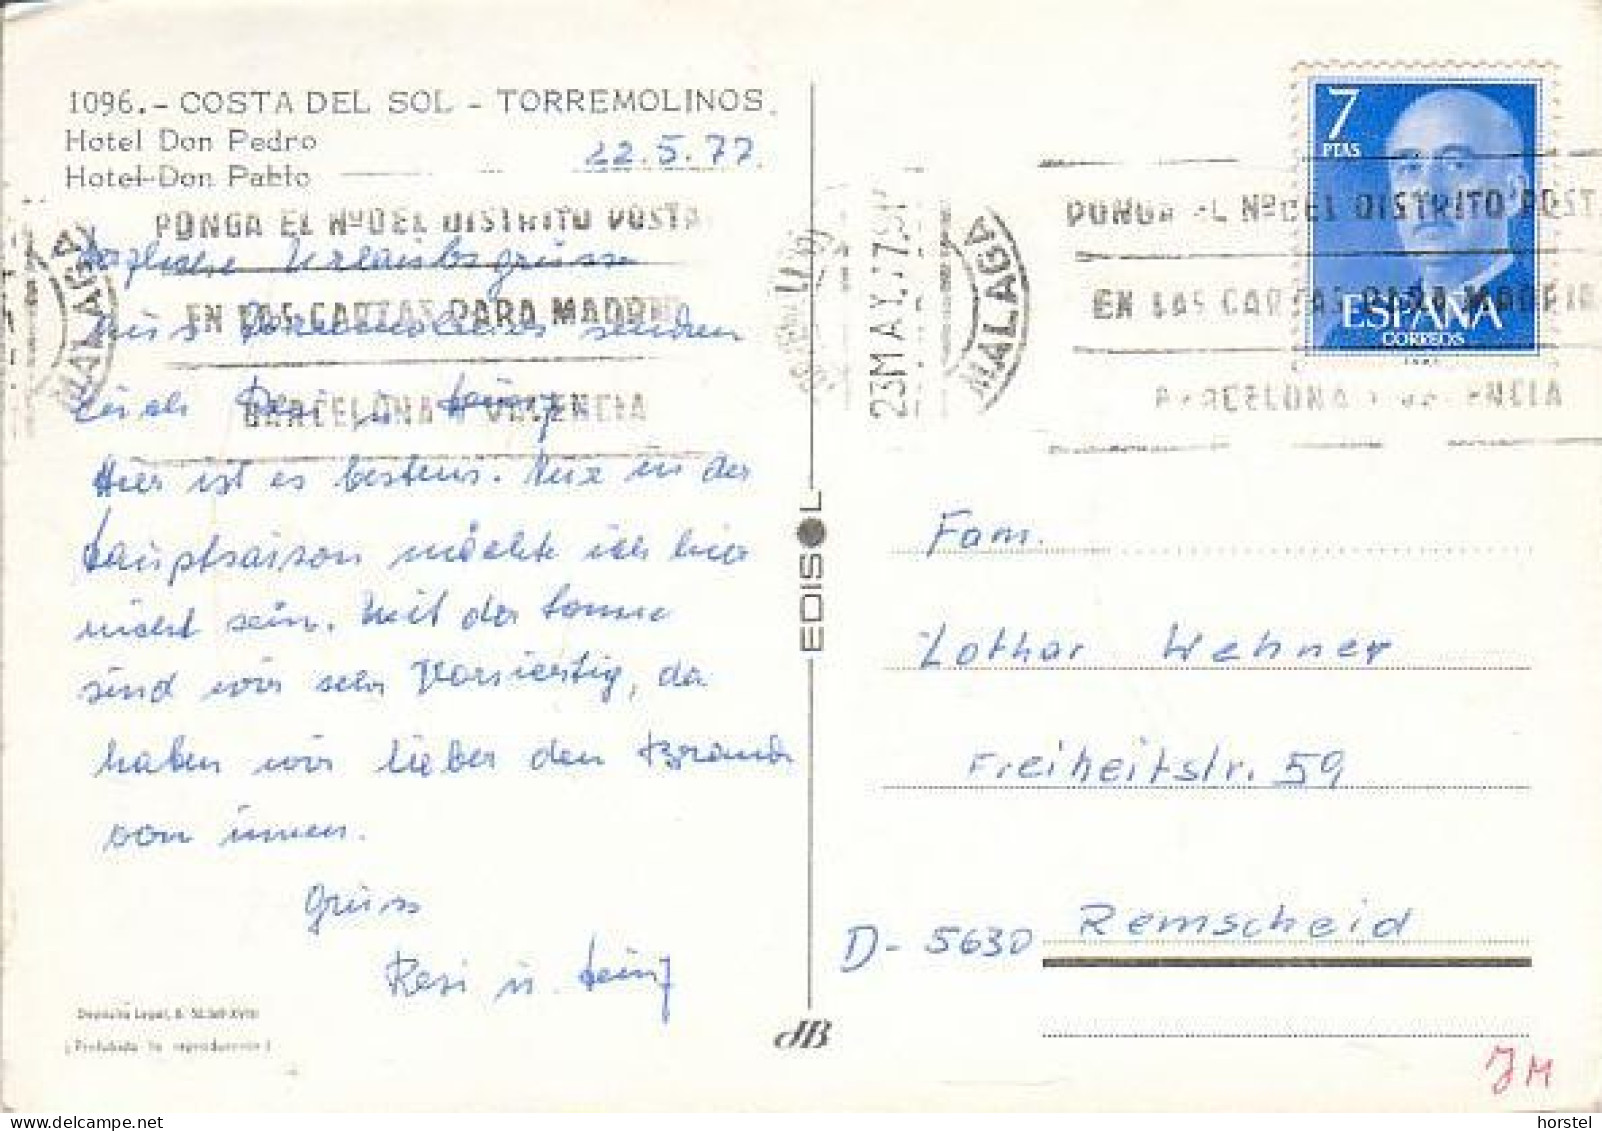 1096.- COSTA DEL SOL - TORREMOLINOS.
Hotel Don Pedro
22.5.77.
Hotel Don Pablo
PONGA EL Nº DEL DISTRITO POSTA
Urlaubsgrüsse
EN LAS CARTAS PARA MADRID
aus Torremolinos senden
BARCELONA Y VALENCIA
Euch Resi u. Heinz
Hier ist es bestens. Nur in der
Hauptsaison möchte ich hier
nicht sein. Mit der Sonne
sind wir sehr vorsichtig, da
haben wir lieber den Brand
von innen.
Grüss
Resi u. Heinz
Deposito Legal, B.
(Prohibida la reproducción)
EDISOL
dB
MALAGA
23 MAY
MALAGA
PONGA EL Nº DEL DISTRITO POST
EN LAS CARTAS PARA MADRID
BARCELONA Y VALENCIA
7
PTAS
ESPAÑA
CORREOS
Fam.
Lothar Wehner
Freiheitstr. 59
D-5630 Remscheid
JM
horstel @ delcampe.net